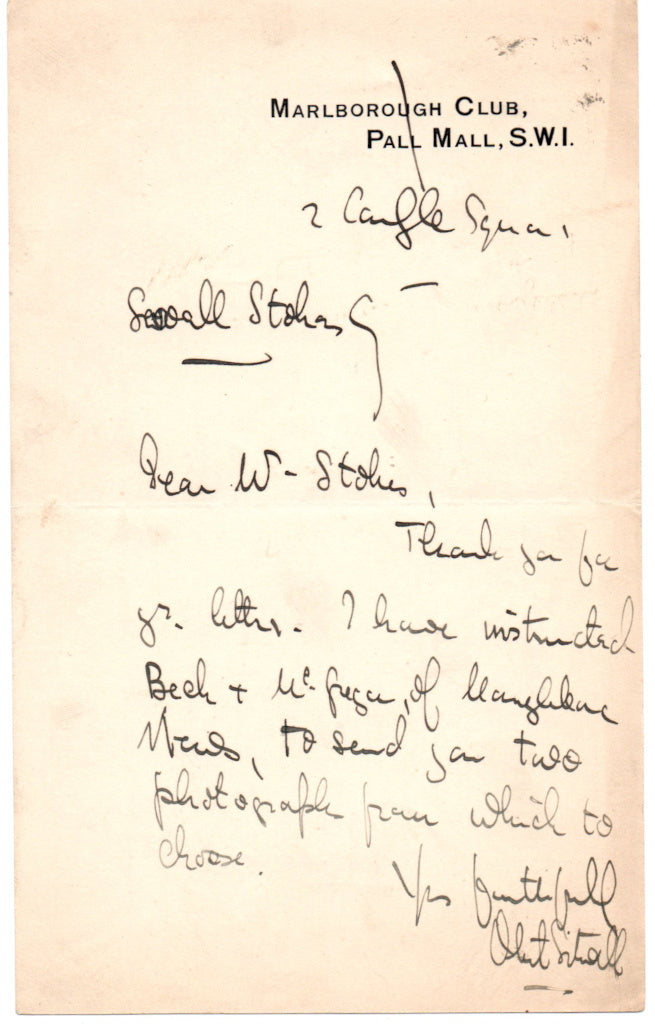 MARLBOROUGH CLUB,
PALL MALL, S.W.1.
2 Carlyle Square,
Sewell Stokes
Dear Mr Stokes,
Thank you for
yr. letter. I have instructed
Beck + McGregor, of Marylebone
Mews, to send you two
photographs from which to
choose.
Yrs faithfully
Osbert Sitwell